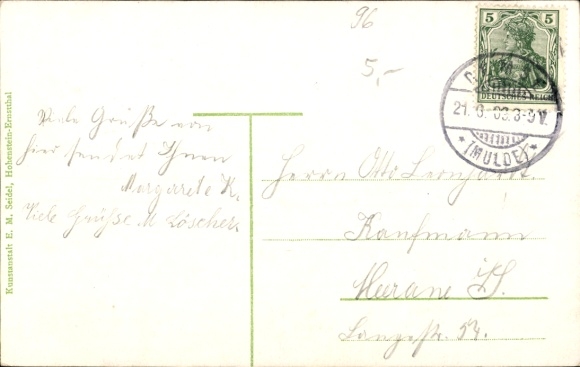 96
5,-
5
DEUTSCHES REICH
(MULDE)
Viele Grüße von
hier sendet Ihnen
Margarete K.
Viele Grüsse M. Löscher.
Herrn Otto Leonhardt.
Kaufmann
Meerane i/S.
Langestr. 54.
Kunstanstalt E. M. Seidel, Hohenstein-Ernstthal